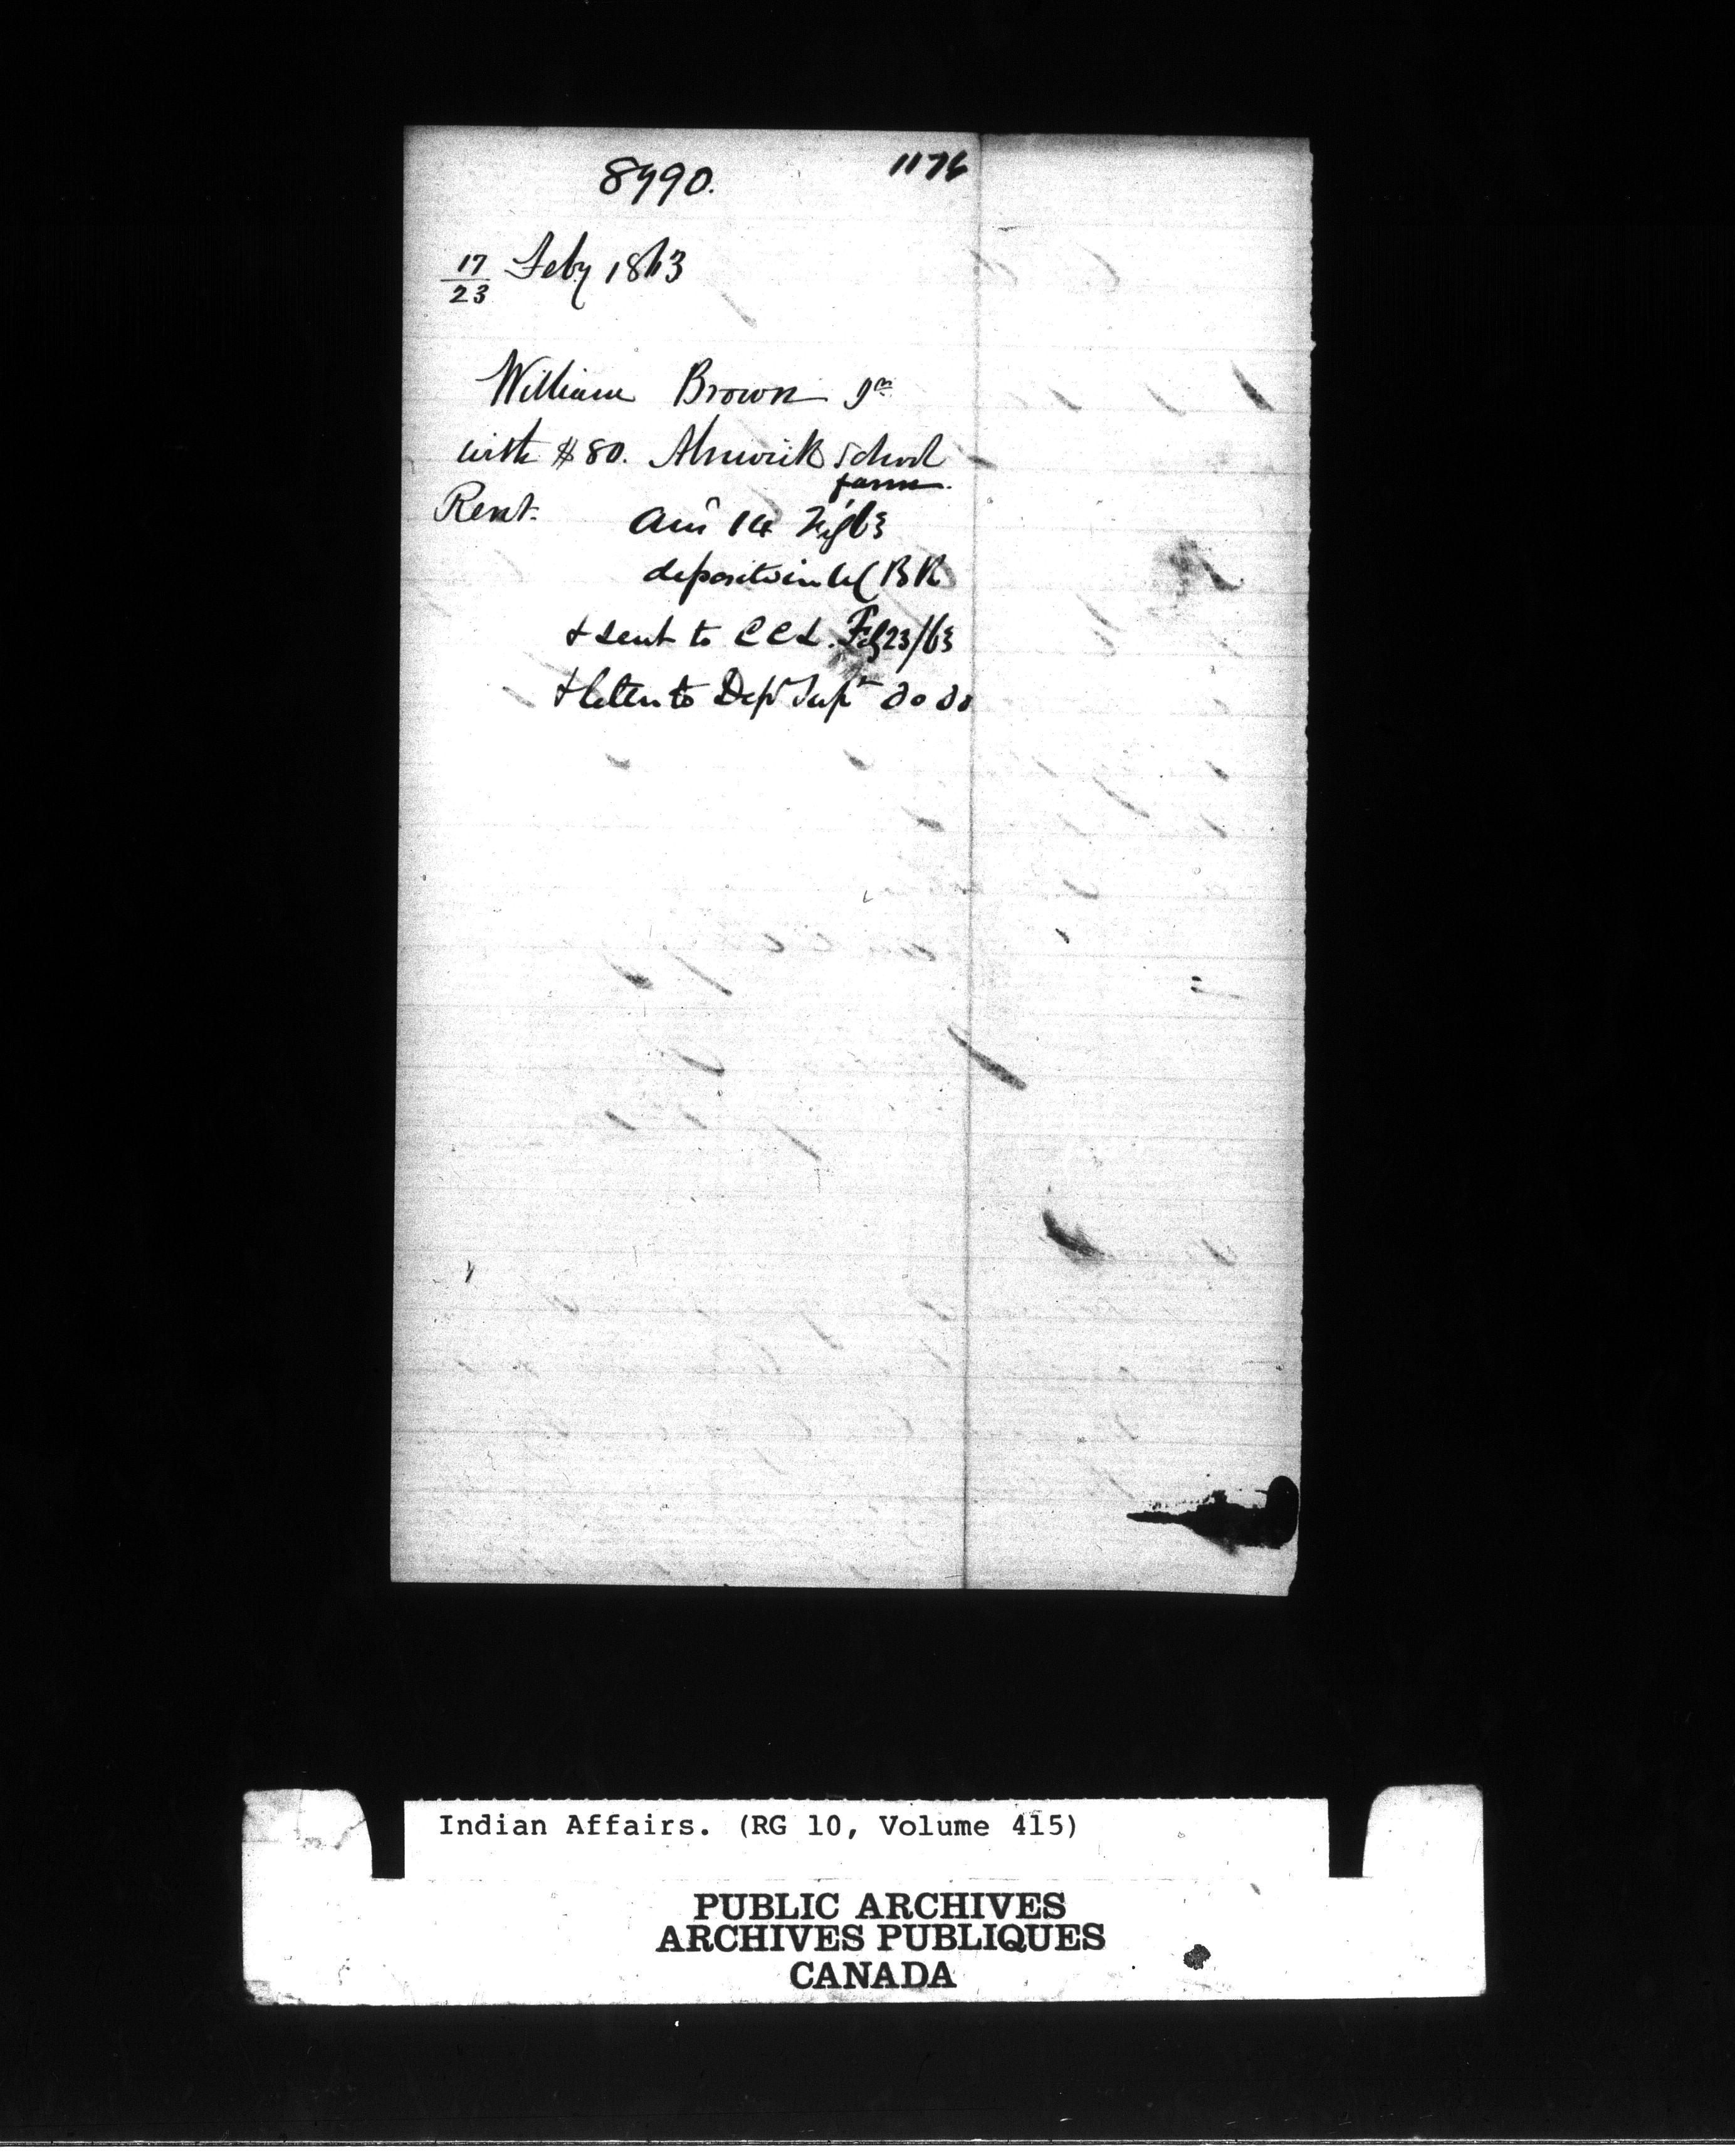 8790.
1176
17/23 Feby 1863
William Brown Jn
with $80. Alnwick School
farm.
Rent.
14 63
deposit in BR
& sent to CCL. Feb 23/63
& letter to Dep Supt do do
Indian Affairs. (RG 10, Volume 415)
PUBLIC ARCHIVES
ARCHIVES PUBLIQUES
CANADA